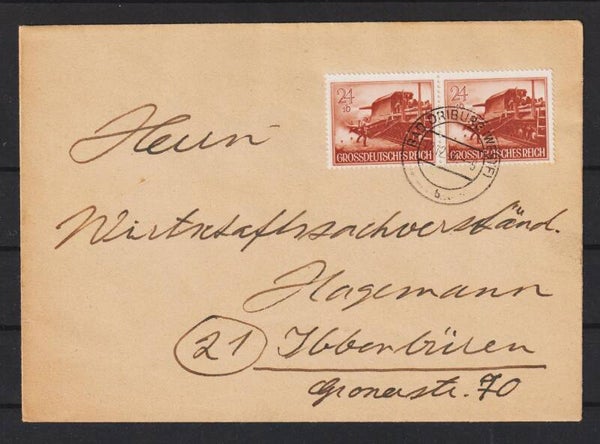 24 24
GROSSDEUTSCHES REICH GROSSDEUTSCHES REICH
BAD DRIBURG (WESTF)
b
Herrn
Wirtschaftssachverständ.
Hagemann
21 Ibbenbüren
Gronerstr. 70